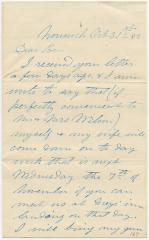 Norwich Oct 31st
Dear Sir
I received your letter
a few days ago & I now
write to say that (if
perfectly convenient to
Mr & Mrs
myself and my wife will
come down on to day
week that is next
Wednesday the 7th of
November if you can
meet us at
landing on that day.
I will bring my gun